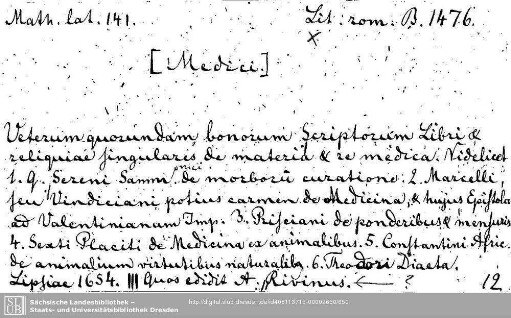 Math. lat. 141.
Lit: rom: B. 1476.
X
[Medici.]
Veterum quorundam bonorum Scriptorum Libri &
religuiae singulares de materia & re medica. Videlicet
1. Q. Sereni Sammonici de morborū curatione. 2. Marcelli,
seu Vindiciani potius carmen de Medicina, & hujus Epistola
ad Valentinianum Imp. 3. Prisciani de ponderibus & mensuris
4. Sexti Placiti de Medicina ex animalibus. 5. Constantini Afric.
de animalium virtutibus naturalib. 6. Theodori Diaeta.
Lipsiae 1654. III Quos edidit A. Rivinus. ← ?
12
SLUB
Sächsische Landesbibliothek –
Staats- und Universitätsbibliothek Dresden